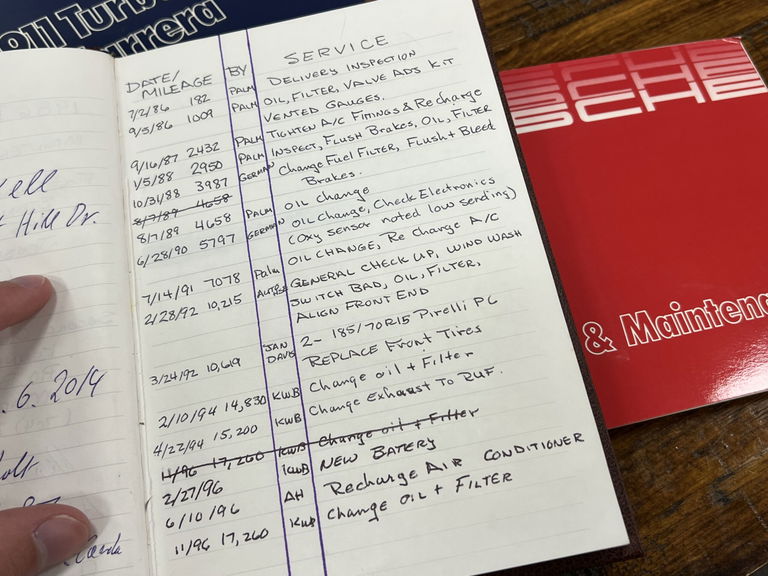 911 Turbo
Carrera
SCHE
SCHE
SCHE
& Maintena
ell
Hill Dr.
6. 2014
olt
DATE/ MILEAGE BY SERVICE
7/2/86 182 PALM DELIVERY INSPECTION
9/5/86 1009 PALM OIL, FILTER, VALVE ADJ KIT
VENTED GAUGES.
9/16/87 2432 PALM TIGHTEN A/C FITTINGS & Recharge
1/5/88 2950 PALM INSPECT, FLUSH BRAKES, OIL, FILTER
10/31/88 3987 GERMAN Change Fuel FILTER, Flush + Bleed
Brakes.
8/7/89 4658
8/7/89 4658 PALM OIL Change
6/28/90 5797 GERMAN OIL Change, Check Electronics
(Oxy sensor noted low sending)
7/14/91 7078 Palm OIL CHANGE, Re charge A/C
2/28/92 10,215 GENERAL CHECK UP, WIND WASH
SWITCH BAD, OIL, FILTER,
ALIGN FRONT END
3/24/92 10,619 JAN DAVIS 2- 185/70R15 Pirelli PC
REPLACE Front Tires
2/10/94 14,830 KWB Change oil + Filter
4/22/94 15,200 KWB Change Exhaust To RUF.
11/96 17,260 KWB Change oil + Filter
2/27/96 KWB NEW BATERY
6/10/96 AH Recharge AIR CONDITIONER
11/96 17,260 KWB Change OIL + FILTER